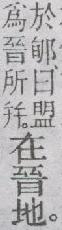 於郇曰盟
爲晉所幷。
在晉地。